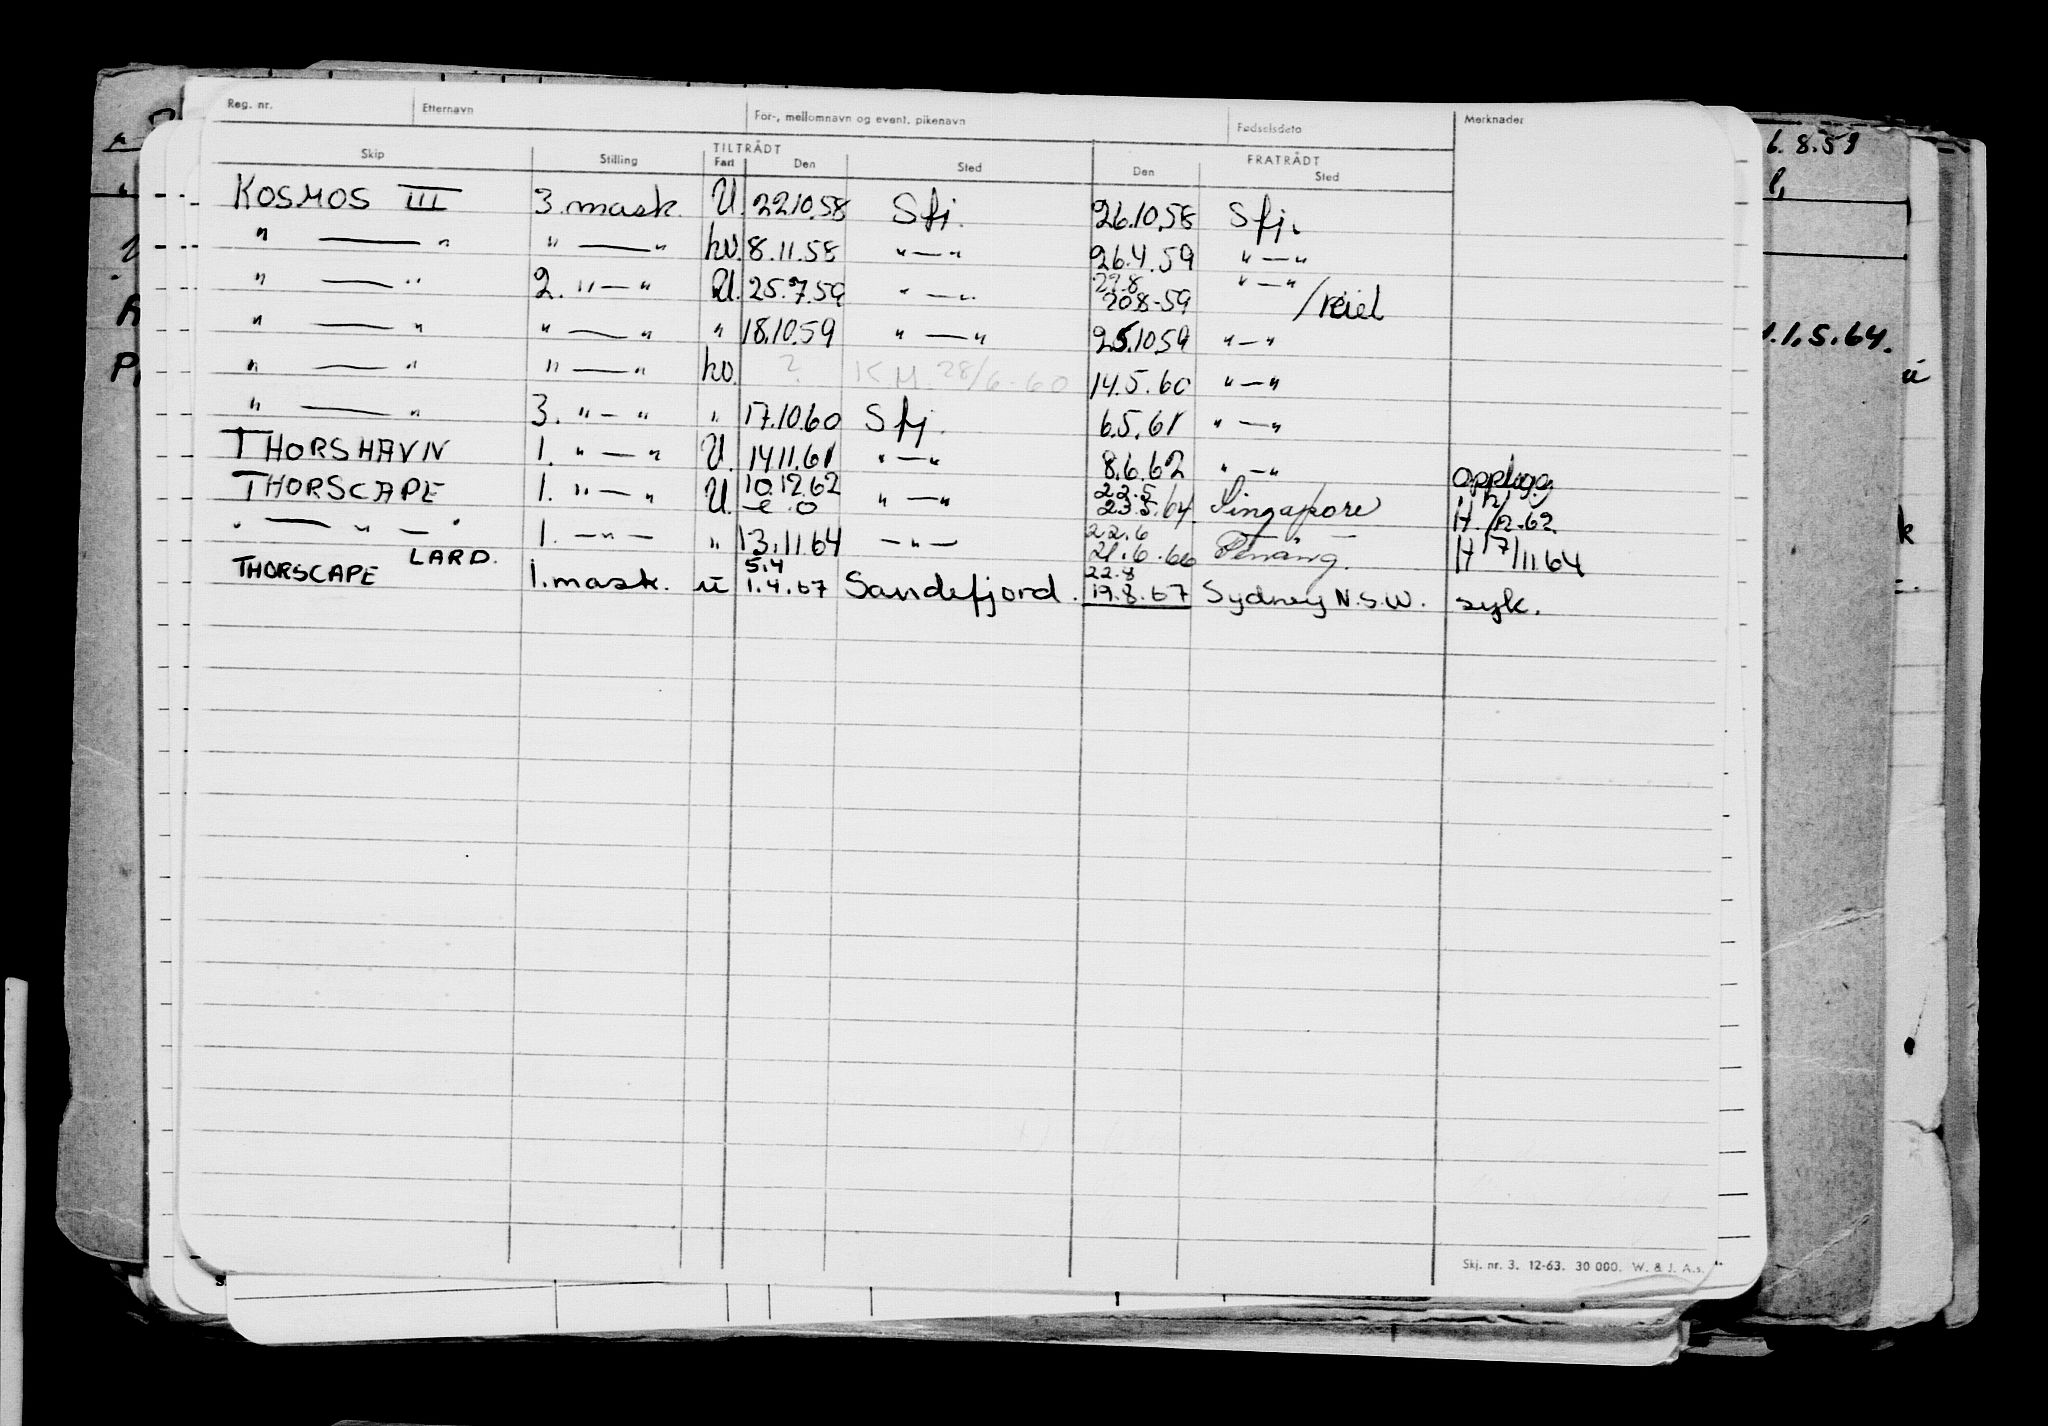 Reg. nr. Etternavn For-, mellomnavn og event. pikenavn Fødselsdato Merknader
TILTRÅDT FRATRÅDT
Skip Stilling Fart Den Sted Den Sted
KOSMOS III 3. mask. U. 22.10.58 Sfj. 26.10.58 Sfj.
" — " " — " hv. 8.11.58 " — " 26.4.59 " — "
" — " 2. " — " U. 25.7.59 " — " 20.8-59 " — "
" — " " — " " 18.10.59 " — " 25.10.59 " — "
" — " " — " hv. ? K M 28/6-60 14.5.60 " — "
" — " 3. " — " " 17.10.60 Sfj. 6.5.61 " — "
THORSHAVN 1. " — " U. 14.11.61 " — " 8.6.62 " — " opplag.
THORSCAPE 1. " — " U. 10.12.62 " — " 22.5 23.5.64 Singapore H. /12.62
" — " — " 1. — " — " 13.11.64 — " — 22.6 21.6.66 Penang. H 17/11.64
LARD.
THORSCAPE 1. mask. u 5.4 1.4.67 Sandefjord. 22.8 19.8.67 Sydney N.S.W. syk.
Skj. nr. 3. 12-63. 30 000. W. & J. A.s.
6.8.59
1.5.64.